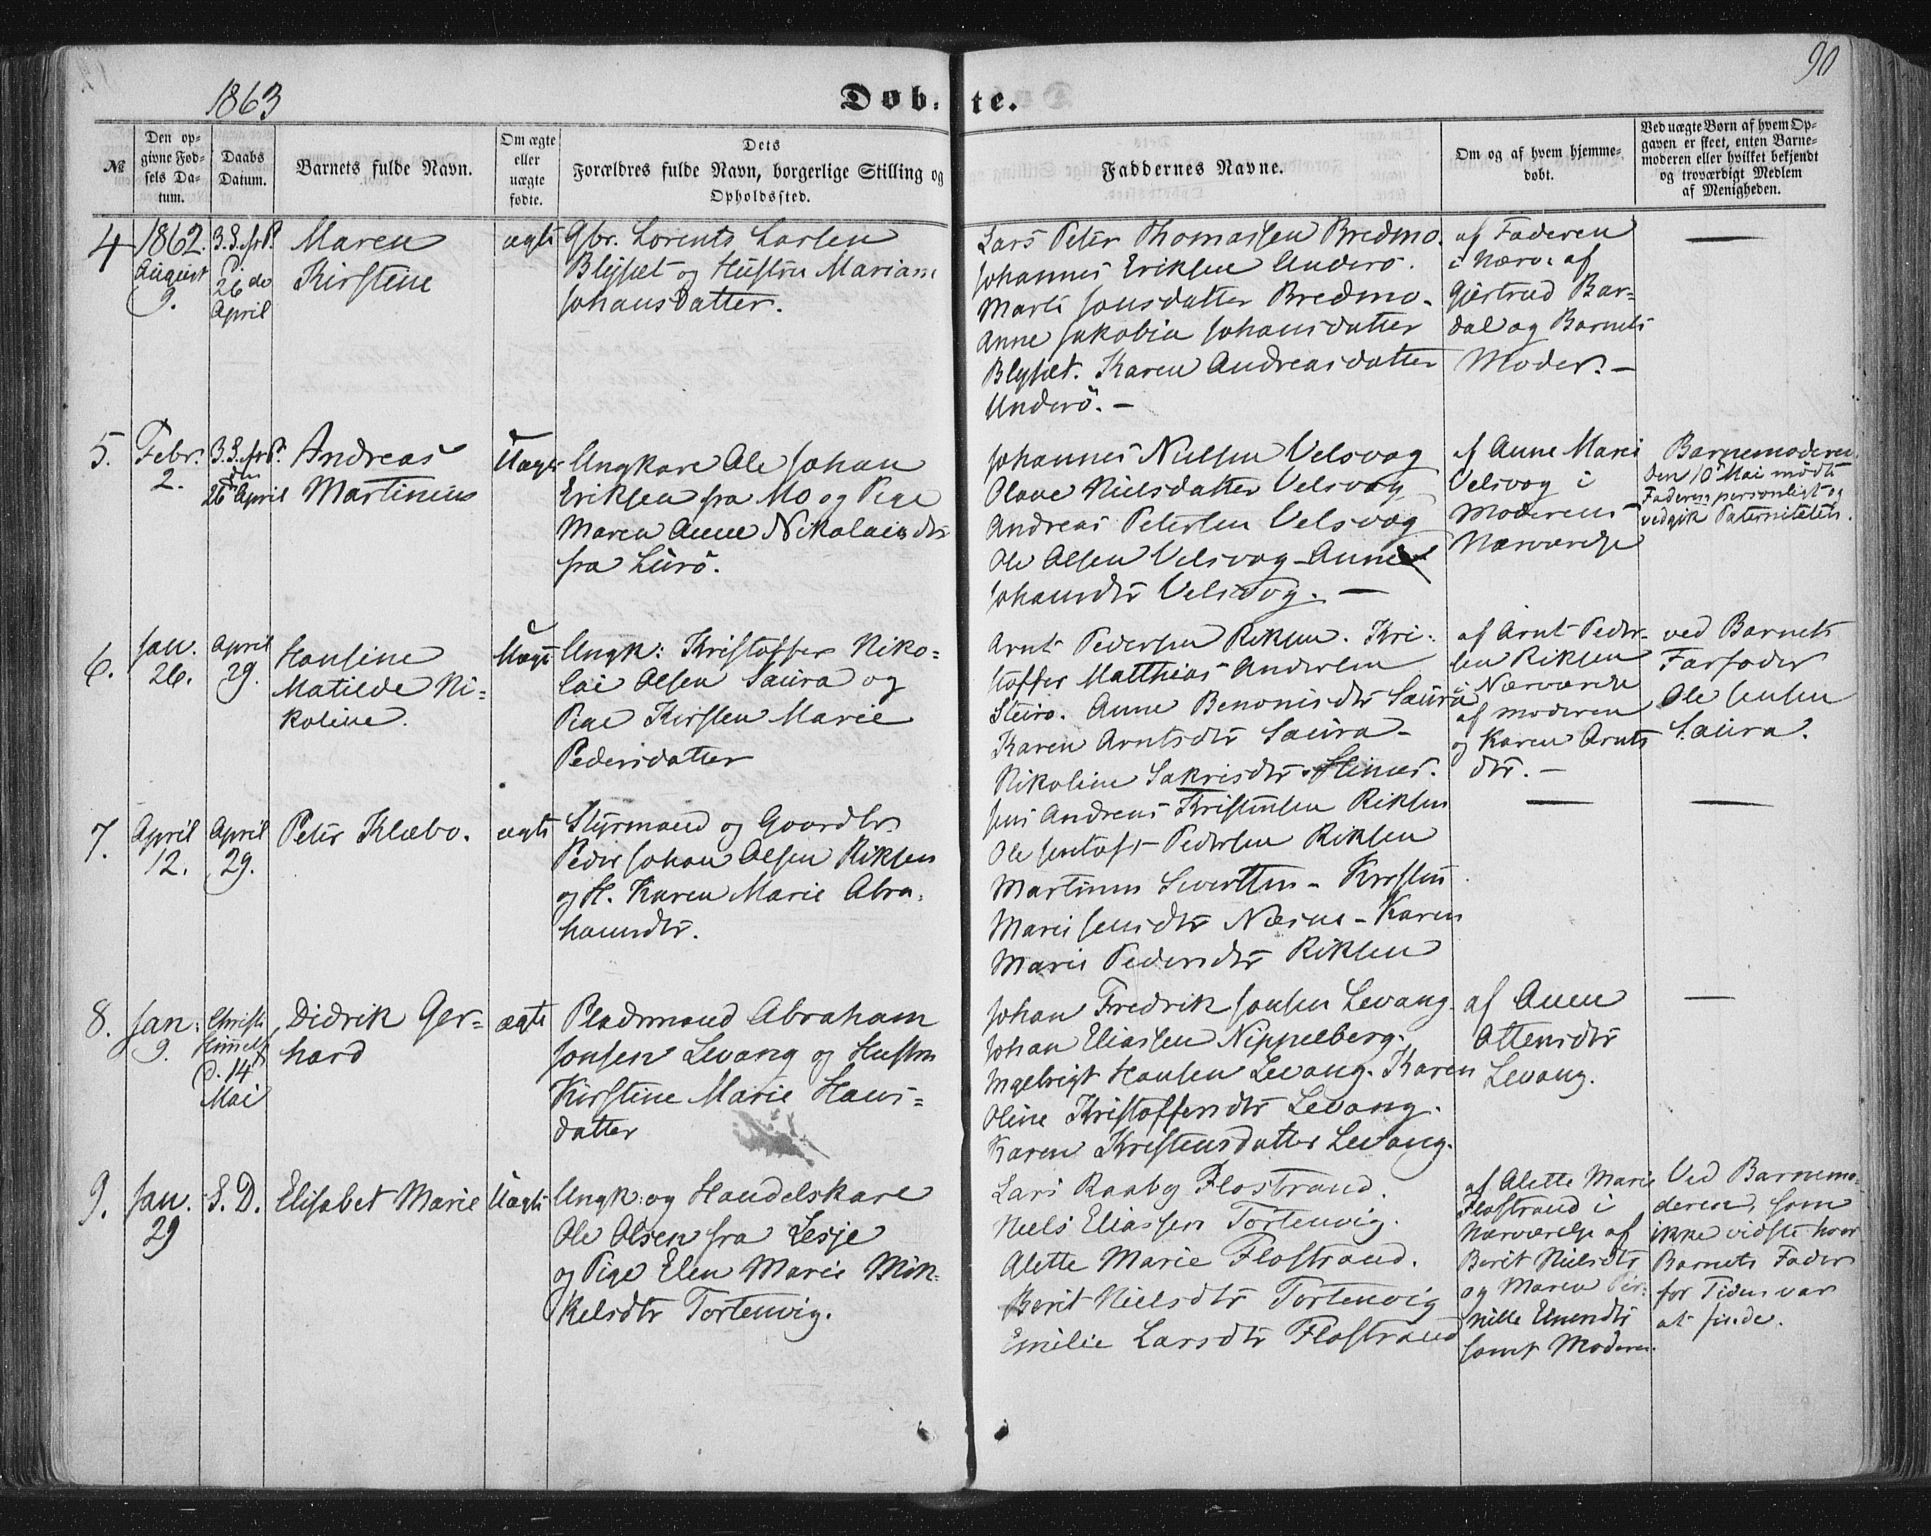 1863
90
Døbte.
№
Den opgivne Fødsels Datum.
Daabs Datum.
Barnets fulde Navn.
Om ægte eller uægte fødte.
Dets Forældres fulde Navn, borgerlige Stilling og Opholdssted.
Faddernes Navne.
Om og af hvem hjemmedøbt.
Ved uægte Børn af hvem Opgaven er skeet, enten Barnemoderen eller hvilket bekjendt og troværdigt Medlem af Menigheden.
4
1862.
August
9.
3. S. fr P.
26de
April
Maren
Kirstine
ægte
Gbr. Lorents Larsen
Blysæt og Hustru Mariam
Johansdatter.
Lars Peter Thomassen Bredmo.
Johannes Eriksen Anderø.
Marti Jonsdatter Bredmo.
Anne Jakobia Johansdatter
Blysæt. Karen Andreasdatter
Underö. –
af Faderen
i Nærv. af
Gjertrud Bar-
dal og Barnets
Moder. –
—
5.
Febr.
2.
3. S. fr P.
den
26 April
Andreas
Martinius
Uægte
Ungkare Ole Johan
Eriksen fra Mo og Pige
Maren Anne Nikolaisdtr
fra Lurö.
Johannes Nielsen Velsvag
Olave Nielsdatter Velsvag
Andreas Petersen Velsvag
Ole Olsen Velsvag – Anne
Johansdtr Velsvag. —
af Anne Marie
Velsvog i
Moderens
Nærværelse
Barnemoderen
Den 10 Mai mødte
Faderen personligt og
vedgik Paterniteten.
6.
Jan.
26.
April
29.
Hansine
Matilde Ni-
koline.
Uægte
Ungk: Kristoffer Niko-
lai Olsen Saura og
Pige Kirsten Marie
Pedersdatter
Arnt Pedersen Riksen. Kri-
stoffer Matthias Andersen
Steiro. Anne Benonisdtr Saura
Karen Arntsdtr Saura –
Nikoline Sakrisdtr
af Arnt Peder-
sen Riksen
i Nærværelse
af Moderen
og Karen Arnts
dtr. –
ved Barnets
Farfader
Ole Jensen
Saura.
7.
April
12.
April
29.
Peter Klæbo.
ægte
Styrmand og Gaardbr.
Peder Johan Olsen Riksen
og H. Karen Marie Abra-
hamsdtr.
Jens Andreas Kristensen Riksen
Ole Pedersen Riksen
Martinus Sivertsen – Kirsten
Marie Jensdtr Næsne – Karen
Marie Pedersdtr Riksen
—
—
8.
Jan.
9.
Christi
Himmelf
d. 14
Mai
Didrik Ger-
hard
ægte
Pladsmand Abraham
Jonsen Levang og Hustru
Kirstine Marie Hans-
datter
Johan Fredrik Jonsen Levang
Johan Eliassen Nippelberg.
Ingebrigt Hansen Levang. Karen
Oline Kristoffersdtr Levang.
Karen Kristensdatter Levang.
af Anen
Ottensdtr
Levang.
—
9.
Jan.
29
S. D.
Elisabet Marie
Uægte
Ungk: og Handelskare
Ole Olsen fra Lesje
og Pige Elen Marie Mik-
kelsdtr Tortenvig.
Lars Raaby Flostrand.
Niels Eliassen Tortenvig.
Alette Marie Flostrand.
Berit Nielsdtr Tortenvig
Emilie Larsdtr Flostrand
af Alette Marie
Flostrand i
Nærværelse af
Berit Nielsdtr
og Maren Per-
nille
samt Moderen.
Ved Barnemo-
deren, som
ikke vidste hvor
Barnets Fader
for Tiden var
at finde.